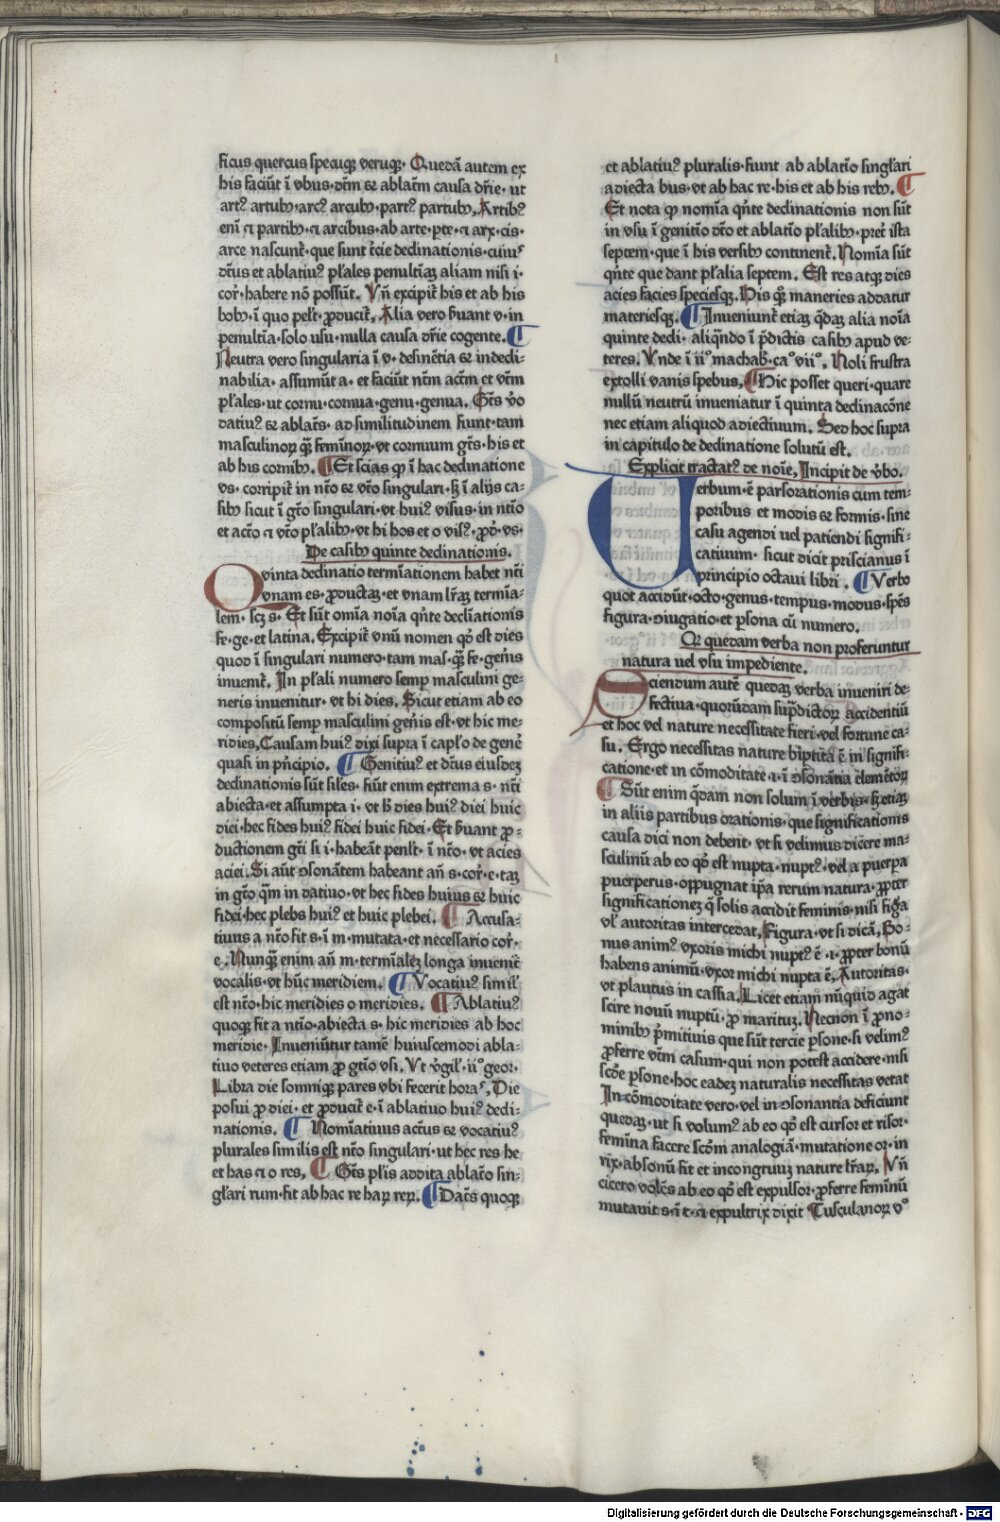 ficus quercus specusqꝫ veruqꝫ. Quedā autem ex
his faciūt ī vbus. dt̄m ⁊ ablat̄m causa dr̄ie. ut
artꝰ artubꝫ. arcꝰ arcubꝫ. partꝰ partubꝫ. Artibꝰ
enī ⁊ partibꝫ. ⁊ arcibus. ab arte. ꝑte. ⁊ arx. cis.
arce nascunt̄. que sunt t̄cie declinationis. cuiuꝰ
dt̄us et ablatiuꝰ pl̄ales penultīaꝫ aliam nisi i.
cor̄. habere nō possūt. Vn̄ excipit̄ his et ab his
bobꝫ. ī quo pelt̄. ꝓducit̄. Alia vero ẜuant v. in
penultīa. solo usu. nulla causa dr̄ie cogente. ¶
Neutra vero singularia ī v. desinētia ⁊ indecli-
nabilia. assumūt a. et faciūt nt̄m act̄m et vt̄m
pl̄ales. ut cornu. cornua. genu. genua. Gt̄s v̄o
datiuꝰ ⁊ ablat̄s. ad similitudinem fiunt. tam
masculinoꝝ qꝫ̄ feminoꝝ. vt cornuum gt̄s. his et
ab his cornibꝫ. ¶ Et scias qꝙ ī hac declinatione
vs. corripit̄ in nt̄o ⁊ vt̄o singulari. sꝫ ī alijs ca-
sibꝫ sicut ī gt̄o singulari. vt huiꝰ visus. in nt̄io
et act̄o ⁊ vt̄o pl̄alibꝫ. vt hi hos et o visꝰ. ꝓd̄. vs.
De casibꝫ quinte declinationis.
Qvinta declinatio termīationem habet nt̄i
vnam es. ꝓductaꝫ. et vnam lr̄aꝫ termīa-
lem. scꝫ s. Et sūt omīa noīa qn̄te declīationis
fe. ge. et latina. Excipit̄ vnū nomen qd̄ est dies
quod ī singulari numero. tam mas. qꝫ̄ fe. gen̄is
inuenit̄. In pl̄ali numero semꝑ masculini ge-
neris inuenitur. vt hi dies. Sicut etiam ab eo
compositū semꝑ masculini gen̄is est. vt hic me-
ridies. Causam huiꝰ dixi supra ī capl̄o de gen̄e
quasi in pn̄cipio. ¶ Genitiuꝰ et dt̄us eiusdeꝫ
declinationis sūt sil̄es. fiūt enim extrema s. nt̄i
abiecta. et assumpta i. vt h̄ dies huiꝰ diei huic
diei. hec fides huiꝰ fidei huic fidei. Et ẜuant ꝓ-
ductionem gt̄i si i. habeāt penlt̄. ī nt̄o. vt acies
aciei. Si aūt ꝯsonātem habeant an̄ s. cor̄. e. taꝫ
in gt̄o qm̄ in datiuo. vt hec fides huius ⁊ huic
fidei. hec plebs huiꝰ et huic plebei. ¶ Accusa-
tiuus a nt̄o fit s. ī m. mutata. et necessario cor̄.
e. Nunqꝫ̄ enim an̄ m. termīaleꝫ longa inuenit̄
vocalis. vt hūc meridiem. ¶ Vocatiuꝰ simil̓
est nt̄o. hic meridies o meridies. ¶ Ablatiuꝰ
quoqꝫ fit a nt̄io. abiecta s. hic meridies ab hoc
meridie. Inueniūtur tamē huiuscemodi abla-
tiuo veteres etiam ꝓ gt̄io vsi. Vt v̄gil̓. ii° geor.
Libra die somniqꝫ pares vbi fecerit horaˢ. Die
posui ꝓ diei. et ꝓducit̄ e. ī ablatiuo huiꝰ decli-
nationis. ¶ Nomīatiuus act̄us ⁊ vocatiuꝰ
plurales similis est nt̄o singulari. ut hec res he
et has ⁊ o res. ¶ Gt̄s pl̄is addita ablat̄o sin-
gl̄ari rum. fit ab hac re haꝝ reꝝ. ¶ Dat̄s quoqꝫ
et ablatiuꝰ pluralis. fiunt ab ablat̄io singl̄ari
adiecta bus. vt ab hac re. his et ab his rebꝫ. ¶
Et nota qꝙ nomīa qn̄te declinationis non sūt
in vsu ī genitio dt̄o et ablatio pl̄alibꝫ. pret̄ ista
septem. que ī his versibꝫ continent̄. Nomīa sūt
qn̄te que dant pl̄alia septem. Est res atqꝫ dies
acies facies speciesqꝫ. His qꝫ̄ maneries addatur
materiesqꝫ. ¶ Inueniunt̄ etiaꝫ qd̄aꝫ alia noīa
quinte decli. aliqn̄do ī p̄dictis casibꝫ apud ve-
teres. Vnde ī ii° machab̄. ca° vii°. Noli frustra
extolli vanis spebus. ¶ Hic posset queri. quare
nullū neutrū inueniatur ī quinta declinacōne
nec etiam aliquod adiectiuum. Sed hoc supra
in capitulo de declinatione solutū est.
Explicit tractatꝰ de noīe. Incipit de v̄bo.
Verbum. ē pars orationis cum tem-
poribus et modis ⁊ formis. sine
casu agendi uel patiendi signifi-
catiuum. sicut dicit priscianus ī
principio octaui libri. ¶ Verbo
quot accidūt. octo. genus. tempus. modus. sp̄es
figura. ꝯiugatio. et ꝑsona cū numero.
Qꝙ quedam verba non proferuntur
natura uel vsu impediente.
Sciendum autē quedaꝫ verba inueniri de-
fectiua. quorūdam sup̄dictoꝝ accidentiū
et hoc vel nature necessitate fieri. vel fortune ca-
su. Ergo necessitas nature bip̄tita ē in signifi-
catione. et in cōmoditate .i. ī ꝯsonātia elemētoꝝ
¶ Sūt enim qd̄am non solum ī verbis. sꝫ etiaꝫ
in aliis partibus orationis. que significationis
causa dici non debent. vt si velimus dicere ma-
sculinū ab eo qd̄ est nupta. nuptꝰ. vel a puerpa
puerperus. oppugnat ip̄a rerum natura. ꝓpter
significationeꝫ q̄ solis accidit feminis. nisi fig̓a
vl̓ autoritas intercedat. Figura. vt si dicā. Bo-
nus animꝰ vxoris michi nuptꝰ ē .i. ꝓpter bonū
habens animū. vxor michi nupta ē. Autoritas.
vt plautus in cassia. Licet etiam nūquid agat
scire nouū nuptū. ꝓ marituꝫ. Necnon ī ꝓno-
minibꝫ p̄mitiuis que sūt tercie ꝑsone. si velimꝰ
ꝓferre vt̄m casum. qui non potest accidere. nisi
scd̄e ꝑsone. hoc eadeꝫ naturalis necessitas vetat
In cōmoditate vero. vel in ꝯsonantia deficiunt
quedaꝫ. ut si volumꝰ ab eo qd̄ est cursor et risor.
femīna facere scd̄m analogiā. mutatione or. in
rix. absonū fit et incongruuꝫ nature lr̄aꝝ. Vn̄
cicero volēs ab eo qd̄ est expulsor. ꝓferre feminū
mutauit s. ī t. ⁊ expultrix dixit Tusculanoꝝ v°
Digitalisierung gefördert durch die Deutsche Forschungsgemeinschaft - DFG